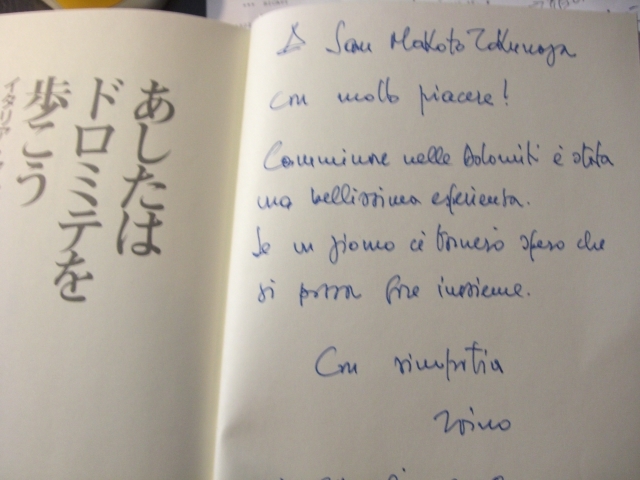 あしたは
ドロミテを
歩こう
イタリア・ア
A San Makoto
con molto piacere!
Camminare nelle Dolomiti è stata
una bellissima esperienza.
Se un giorno ci tornerò spero che
si possa fare insieme.
Con simpatia